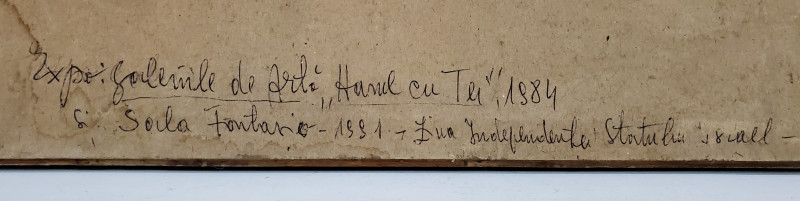 Expo: Galeriile de Artă „Hanul cu Tei", 1984
și Sala Fontana - 1991 - Ziua Independenței Statului israel -